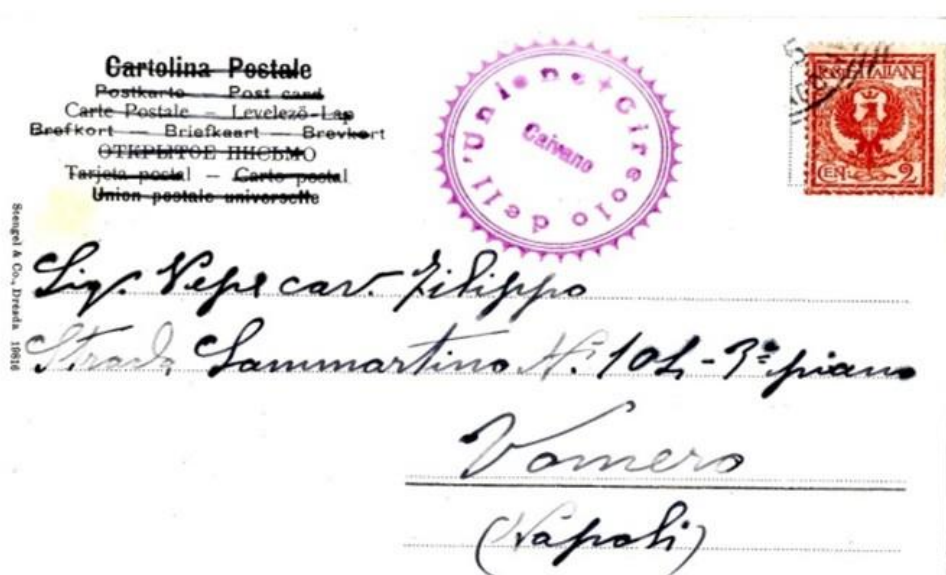 Cartolina Postale
Postkarte — Post card
Carte Postale — Levelező-Lap
Brefkort — Briefkaart — Brevkort
ОТКРЫТОЕ ПИСЬМО
Tarjeta postal — Carto postal
Union postale universelle
Circolo dell'Unione
Caivano
POSTE ITALIANE
CEN. 2
Stengel & Co., Dresda 19816
Sig. Pepe cav. Filippo
Strada Sammartino N.º 102 - 3º piano
Vomero
(Napoli)